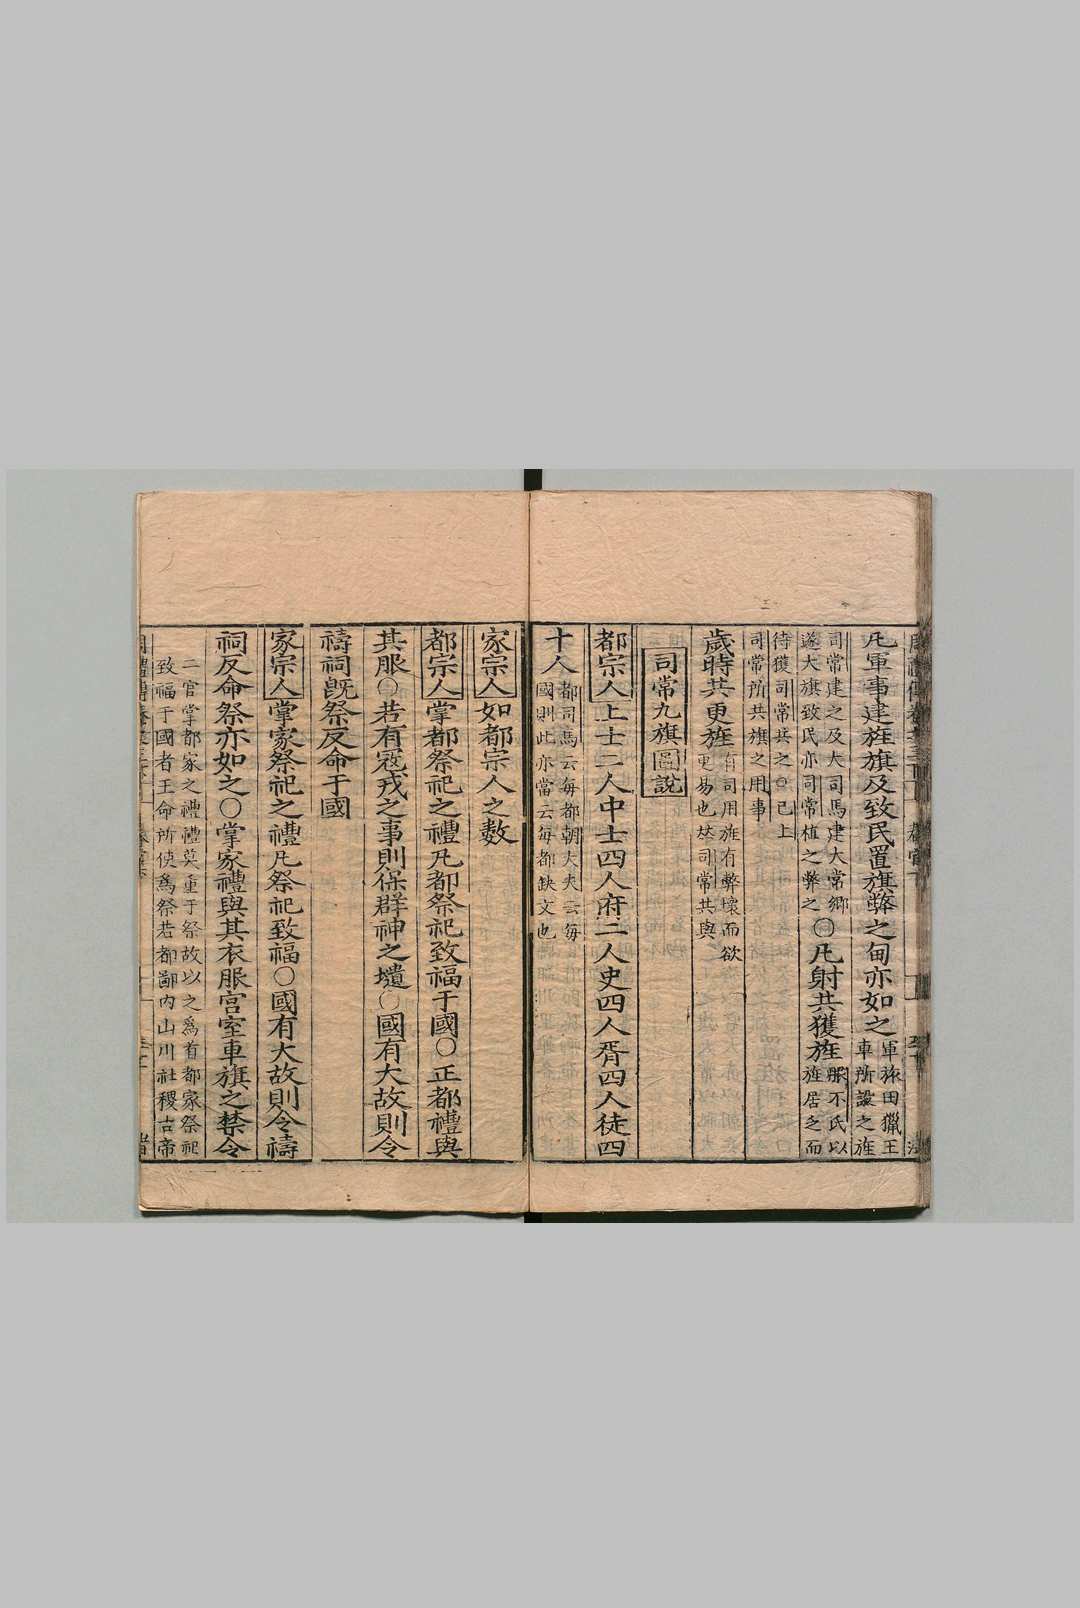 凡軍事建旌旗及致民置旗弊之甸亦如之軍旅田獵王車所設之旌
司常建之及大司馬建大常鄉遂大旗致民亦司常植之弊之○凡射共獲旌服不氏以旌居乏而
待獲司常共之○已上司常所共旗之用事
歲時共更旌有司用旌有弊壞而欲更易也故司常共與
司常九旗圖說
都宗人上士二人中士四人府二人史四人胥四人徒四
十人都司馬云每都朝大夫云每國則此亦當云每都缺文也
家宗人如都宗人之數
都宗人掌都祭祀之禮凡都祭祀致福于國○正都禮與
其服○若有寇戎之事則保群神之壝○國有大故則令
禱祠旣祭反命于國
家宗人掌家祭祀之禮凡祭祀致福○國有大故則令禱
祠反命祭亦如之○掌家禮與其衣服宮室車旗之禁令
二官掌都家之禮禮莫重于祭故以之爲首都家祭祀
致福于國者王命所使爲祭若都鄙內山川社稷古帝